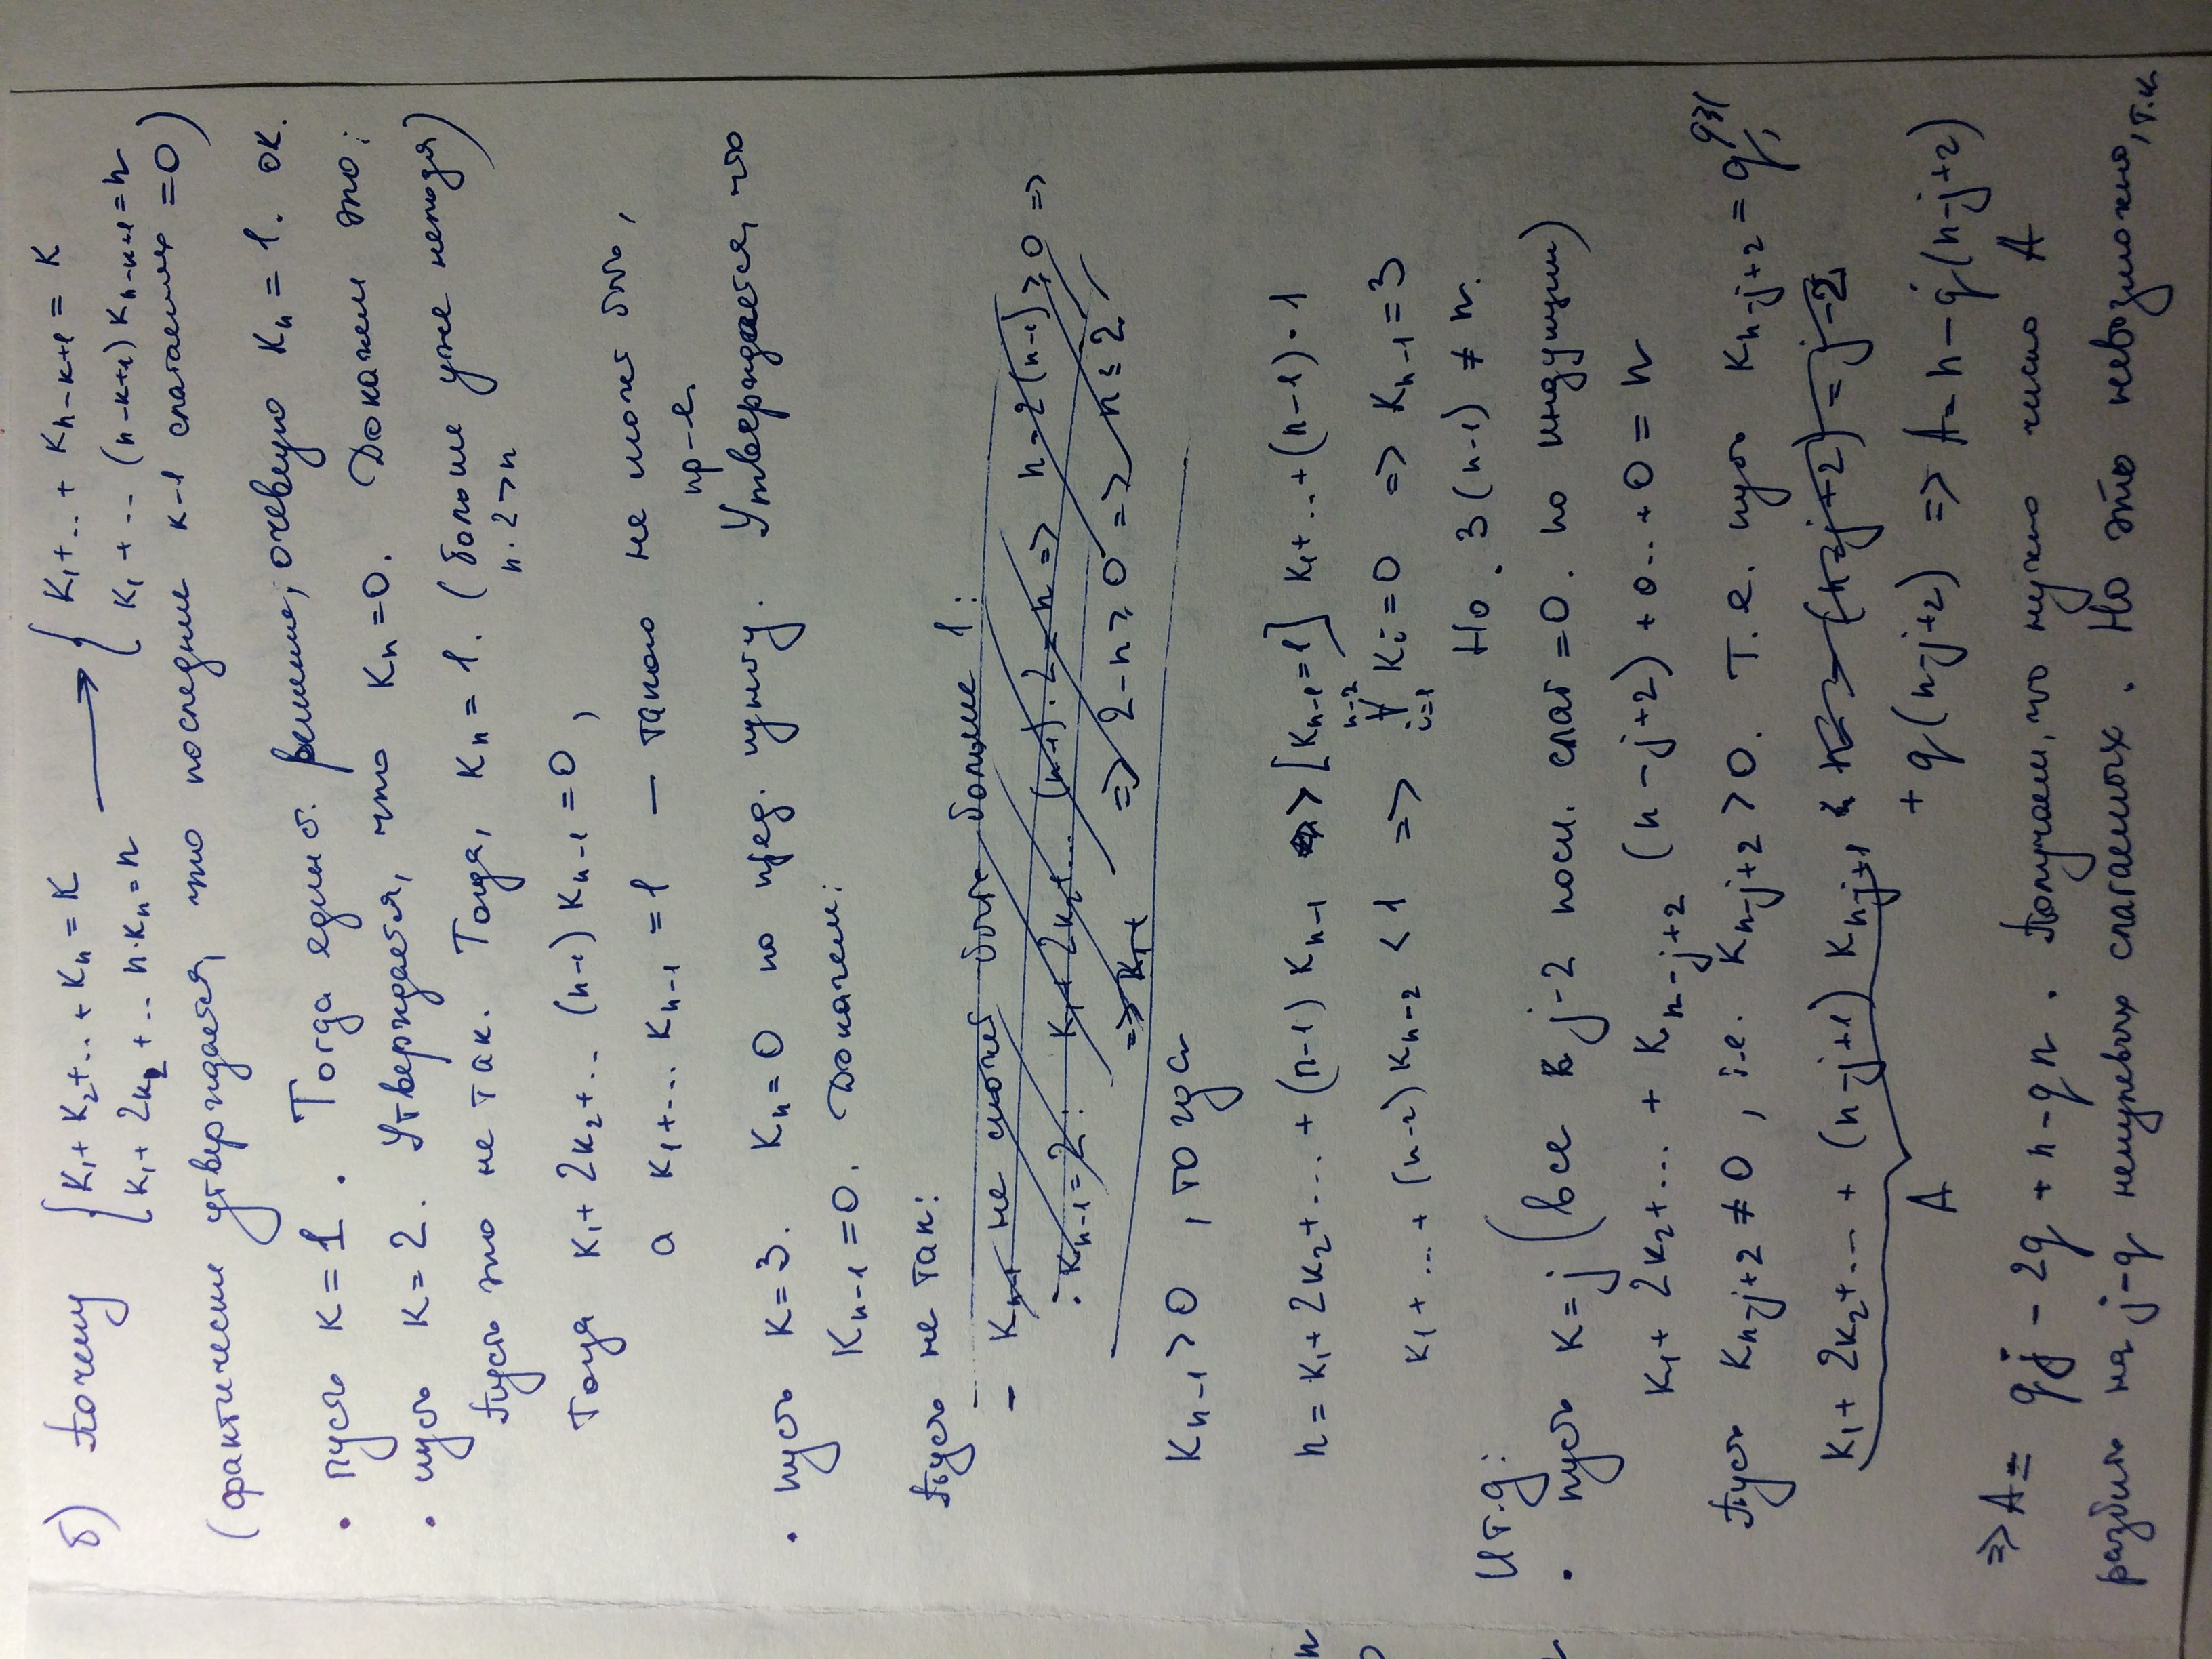 б) Почему { k₁ + k₂ + .. + kₙ = k → { k₁ + .. + kₙ₋ₖ₊₁ = k
k₁ + 2k₂ + .. n·kₙ = n k₁ + .. (n-k+1) kₙ₋ₖ₊₁ = n
(фактически утверждается, что последние k-1 слагаемых = 0)
• пусть k = 1. Тогда единст. решение, очевидно kₙ = 1. ок.
• пусть k = 2. Утверждается, что kₙ = 0. Докажем это:
Пусть это не так. Тогда, kₙ = 1. (больше уже нельзя)
n·2 > n
Тогда k₁ + 2k₂ + .. (n-1) kₙ₋₁ = 0,
а k₁ + ... kₙ₋₁ = 1 — такого не может быть,
пр-е.
• пусть k = 3. kₙ = 0 по пред. пункту. Утверждается, что
kₙ₋₁ = 0. Докажем:
Пусть не так:
- kₙ₋₁ не может быть больше 1:
• kₙ₋₁ = 2: k₁ + 2k₂ + ... (n-1)·2 = n => n - 2(n-1) ≥ 0 =>
=> k₁ + => 2 - n ≥ 0 => n ≤ 2
kₙ₋₁ > 0, тогда
n = k₁ + 2k₂ + ... + (n-1) kₙ₋₁ > [kₙ₋₁ = 1] k₁ + .. + (n-1)·1
k₁ + ... + (n-2) kₙ₋₂ < 1 => ∀ᵢ₌₁ⁿ⁻² kᵢ = 0 => kₙ₋₁ = 3
Но 3(n-1) ≠ n.
И т.д:
• пусть k = j (все j-2 посл. слаг = 0. по индукции)
k₁ + 2k₂ + ... + kₙ₋ⱼ₊₂ (n-j+2) + 0.. + 0 = n
Пусть kₙ₋ⱼ₊₂ ≠ 0, т.е. kₙ₋ⱼ₊₂ > 0. Т.е. пусть kₙ₋ⱼ₊₂ = q, q≥1
k₁ + 2k₂ + ... + (n-j+1) kₙ₋ⱼ₊₁ n - (n-j+2) = j-2
A + q(n-j+2) => A = n - q(n-j+2)
=> A = qj - 2q + n - qn. Получаем, что нужно число A
разбить на j-q ненулевых слагаемых. Но это невозможно, т.к.